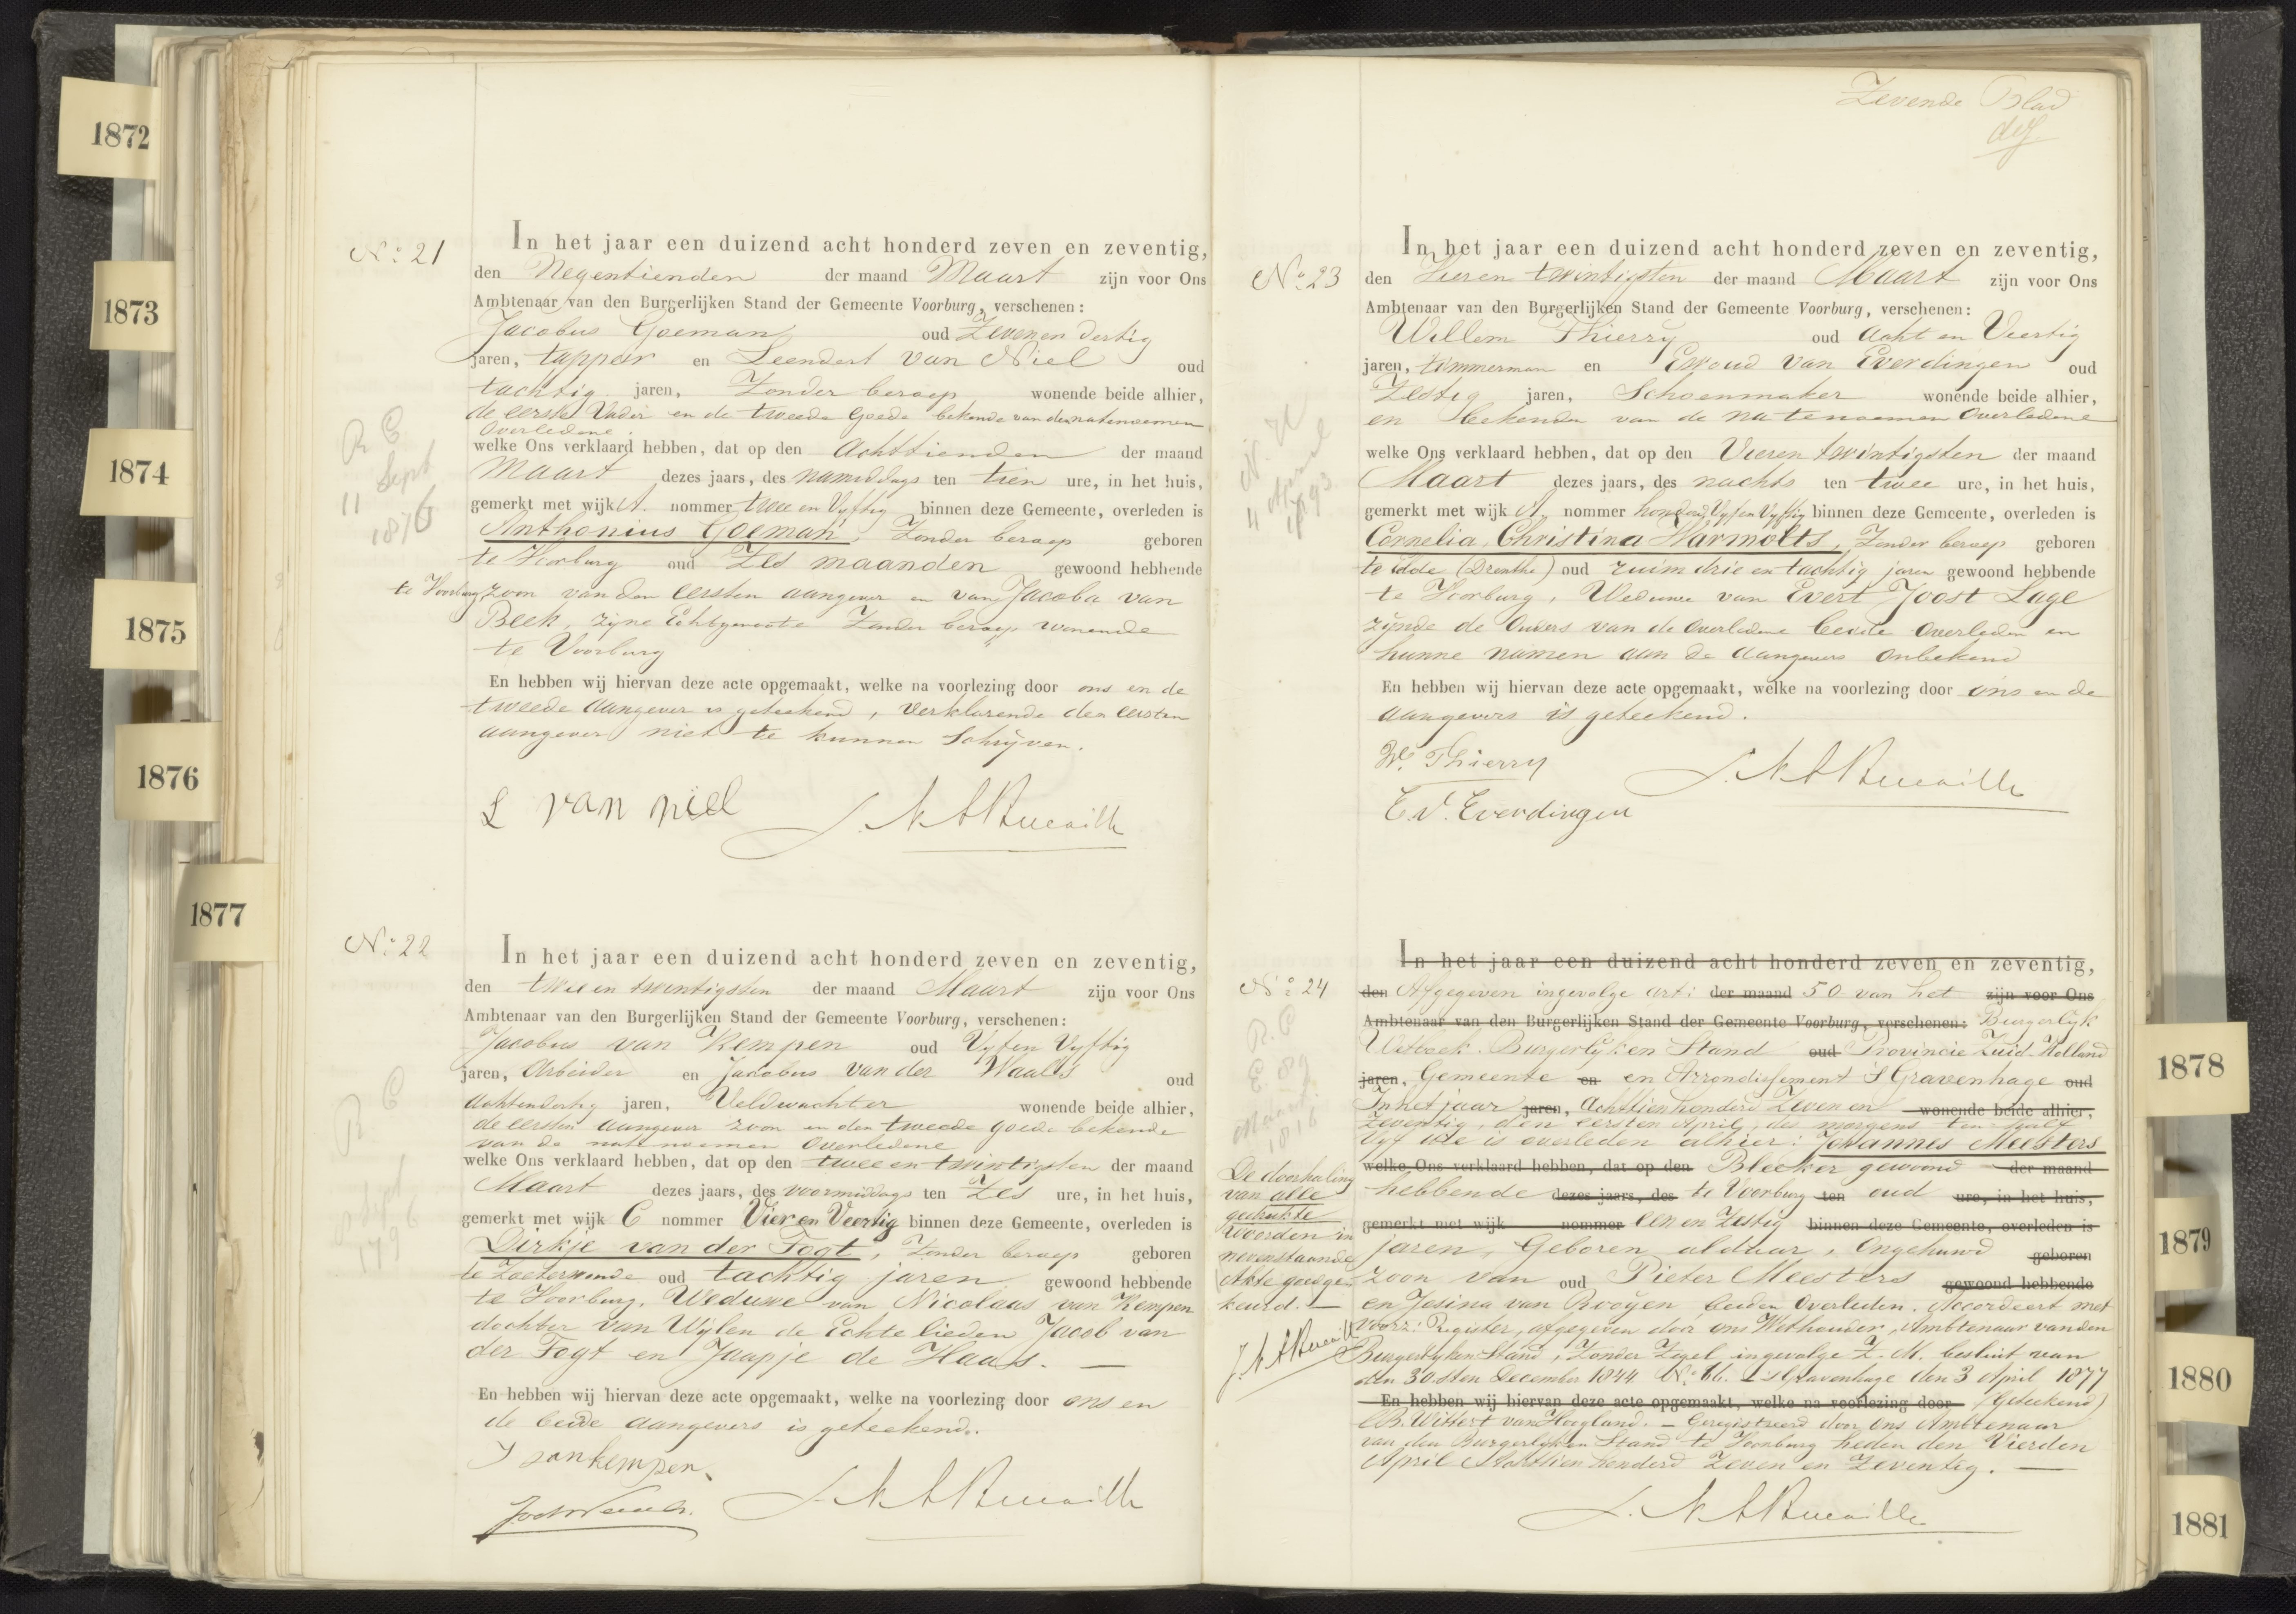 1872
1873
1874
1875
1876
1877
No. 21
In het jaar een duizend acht honderd zeven en zeventig,
den Negentienden der maand Maart zijn voor Ons
Ambtenaar van den Burgerlijken Stand der Gemeente Voorburg, verschenen:
Jacobus Goeman oud Zeven en dertig
jaren, tapper en Leendert van Niel oud
tachtig jaren, Zonder beroep wonende beide alhier,
de eerste Vader en de tweede goede bekende van den natenoemen
Overledene.
welke Ons verklaard hebben, dat op den Achttienden der maand
Maart dezes jaars, des namiddags ten tien ure, in het huis,
gemerkt met wijk A. nommer twee en Vyftig binnen deze Gemeente, overleden is
Anthonius Goeman, Zonder beroep geboren
te Voorburg oud Zes maanden gewoond hebbende
te Voorburg zoon van den eersten aangever en van Jacoba van
Beek, zijne Echtgenoote Zonder beroep wonende
te Voorburg
En hebben wij hiervan deze acte opgemaakt, welke na voorlezing door ons en de
tweede aangever is geteekend, verklarende den eersten
aangever niet te kunnen Schrijven.
L van niel
R C
11 Sept
1876
No. 22
In het jaar een duizend acht honderd zeven en zeventig,
den twee en twintigsten der maand Maart zijn voor Ons
Ambtenaar van den Burgerlijken Stand der Gemeente Voorburg, verschenen:
Jacobus van Kempen oud Vyf en Vyftig
jaren, Arbeider en Jacobus van der Waals oud
Achtendertig jaren, Veldwachter wonende beide alhier,
de eersten aangever zoon en den tweede goede bekende
van de natenoemen Overledene
welke Ons verklaard hebben, dat op den twee en twintigsten der maand
Maart dezes jaars, des voormiddags ten Zes ure, in het huis,
gemerkt met wijk C nommer Vier en Veertig binnen deze Gemeente, overleden is
Dirkje van der Fogt, Zonder beroep geboren
te Zoeterwoude oud tachtig jaren gewoond hebbende
te Voorburg, Weduwe van Nicolaas van Kempen
dochter van Wijlen de Echtelieden Jacob van
der Fogt en Jaapje de Haas. —
En hebben wij hiervan deze acte opgemaakt, welke na voorlezing door ons en
de beide aangevers is geteekend.
J van kempen
R C
Sept
Zevende Blad
No. 23
In het jaar een duizend acht honderd zeven en zeventig,
den Vier en twintigsten der maand Maart zijn voor Ons
Ambtenaar van den Burgerlijken Stand der Gemeente Voorburg, verschenen:
Willem Thierry oud Acht en Veertig
jaren, timmerman en Ewoud van Everdingen oud
Zestig jaren, Schoenmaker wonende beide alhier,
en bekenden van de natenoemen Overledene
welke Ons verklaard hebben, dat op den Vier en twintigsten der maand
Maart dezes jaars, des nachts ten twee ure, in het huis,
gemerkt met wijk A. nommer honderd Vyf en Vyftig binnen deze Gemeente, overleden is
Cornelia Christina Harmolts, Zonder beroep geboren
te Elde (Drenthe) oud ruim drie en tachtig jaren gewoond hebbende
te Voorburg, Weduwe van Evert Joost Lage
zijnde de Ouders van de Overledene beide Overleden en
hunne namen aan de aangevers onbekend
En hebben wij hiervan deze acte opgemaakt, welke na voorlezing door ons en de
aangevers is geteekend.
Wm. Thierry
E.V. Everdingen
N. H
4
1793
No. 24
In het jaar een duizend acht honderd zeven en zeventig,
den Afgegeven ingevolge art: der maand 50 van het zijn voor Ons
Ambtenaar van den Burgerlijken Stand der Gemeente Voorburg, verschenen: Burgerlijk
Wetboek. Burgerlijken Stand oud Provincie Zuid-Holland
jaren, Gemeente en en Arrondissement 'S Gravenhage oud
In het jaar jaren, Achttienhonderd Zeven en wonende beide alhier,
Zeventig, den eersten April, des morgens ten half
Vyf ure is overleden alhier: Johannes Meesters
welke Ons verklaard hebben, dat op den Bleeker gewoond der maand
hebbende dezes jaars, des te Voorburg ten oud ure, in het huis,
gemerkt met wijk nommer een en Zestig binnen deze Gemeente, overleden is
jaren, Geboren aldaar, Ongehuwd geboren
zoon van oud Pieter Meesters gewoond hebbende
en Josina van Rooijen beiden Overleden. Accordeert met
voorz: Register, afgegeven door ons Wethouder, Ambtenaar van den
Burgerlyken Stand, Zonder Zegel ingevolge Z. M. besluit van
den 30sten December 1844 No. 66. 's Gravenhage den 3 April 1877
En hebben wij hiervan deze acte opgemaakt, welke na voorlezing door (Geteekend)
Wittert van Hoogland. — Geregistreerd door Ons Ambtenaar
van den Burgerlijken Stand te Voorburg heden den Vierden
April Achttien honderd Zeven en Zeventig. —
R. C
Maart
1816
De doorhaling
van alle
gedrukte
woorden in
nevenstaande
Akte goedge-
keurd. —
1878
1879
1880
1881